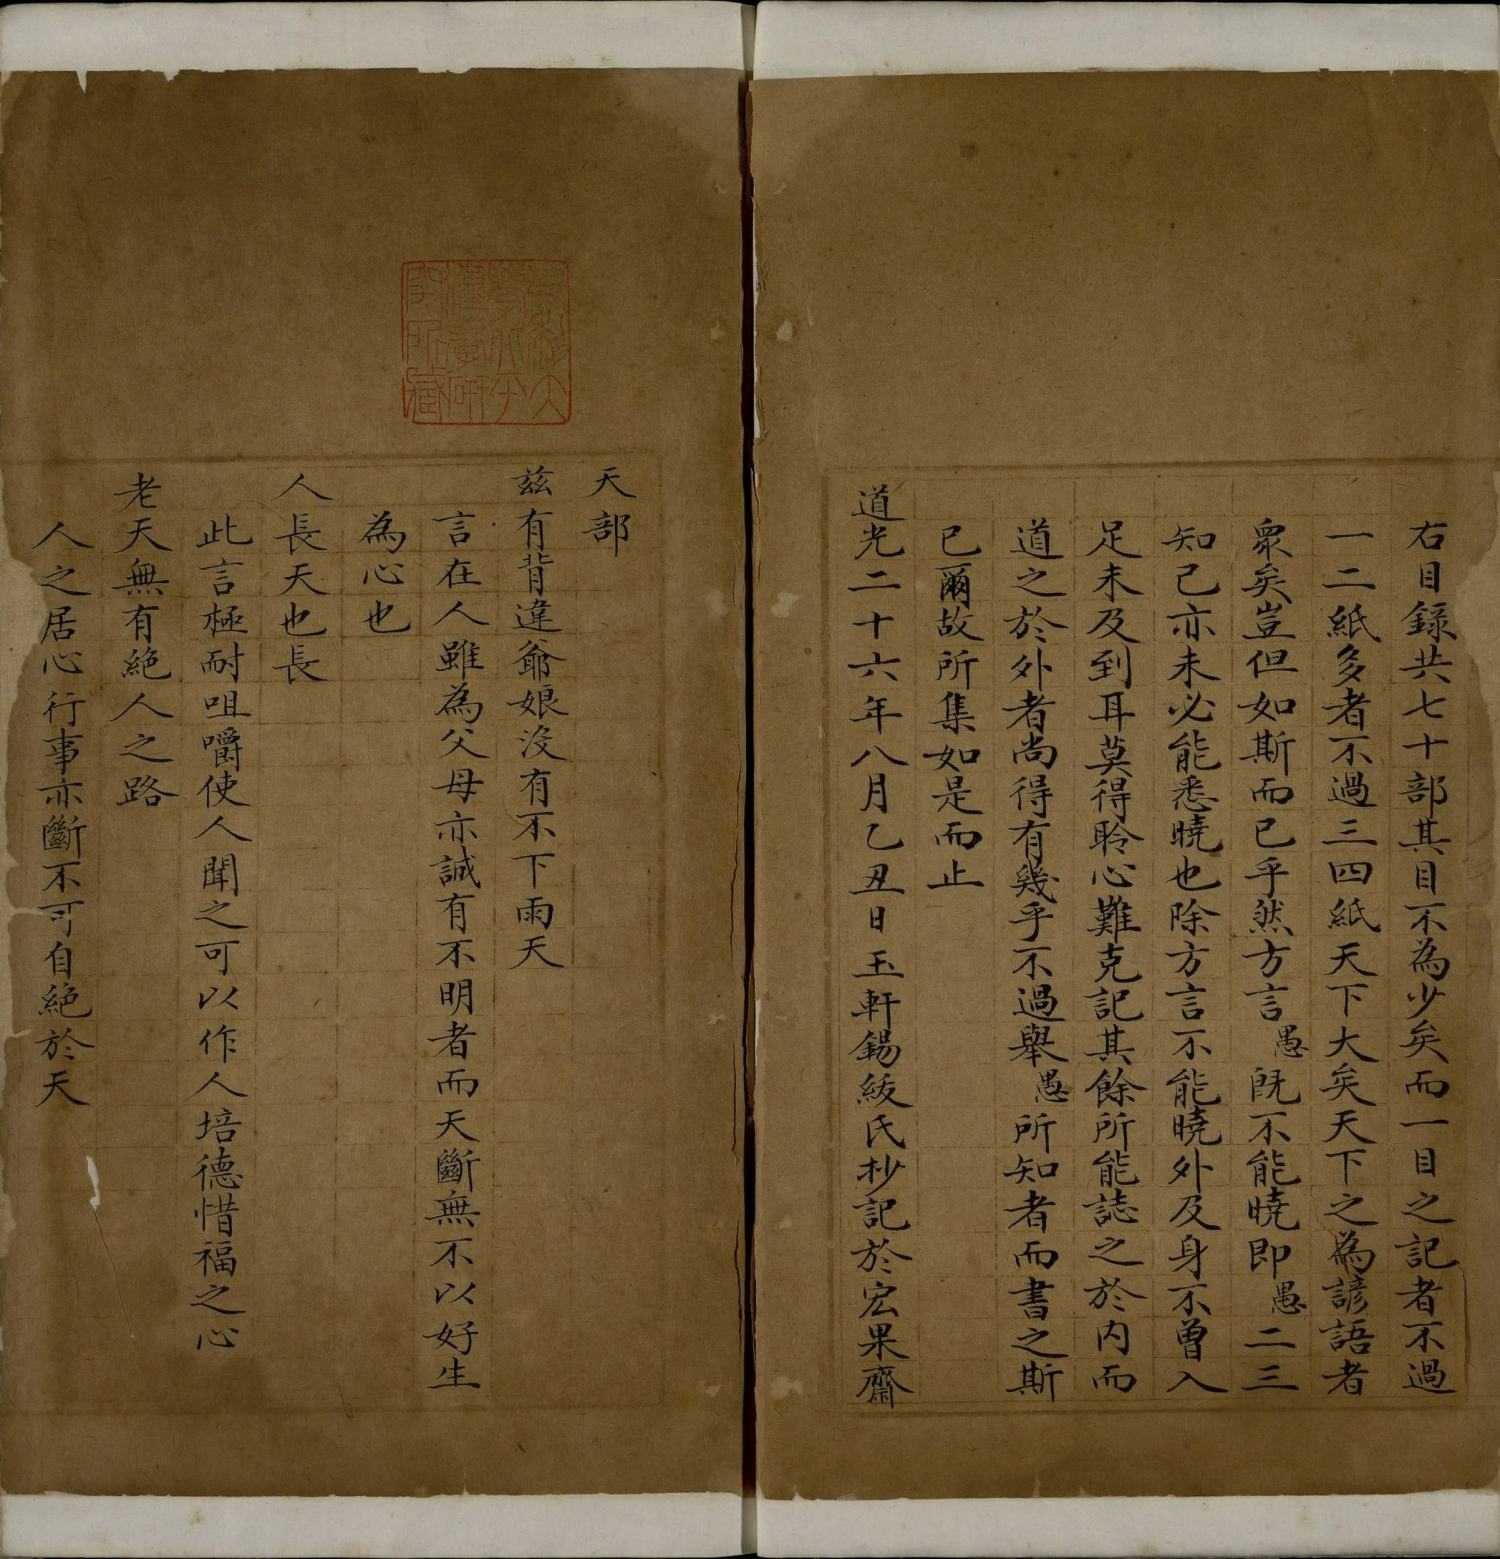 右目錄共七十部其目不為少矣而一目之記者不過
一二紙多者不過三四紙天下大矣天下之為諺語者
衆矣豈但如斯而已乎然方言愚既不能曉即愚二三
知己亦未必能悉曉也除方言不能曉外及身不曾入
足未及到耳莫得聆心難克記其餘所能誌之於内而
道之於外者尚得有幾乎不過舉愚所知者而書之斯
已爾故所集如是而止
道光二十六年八月乙丑日玉軒錫綬氏抄記於宏果齋
天部
兹有背違爺娘沒有不下雨天
言在人雖為父母亦誠有不明者而天斷無不以好生
為心也
人長天也長
此言極耐咀嚼使人聞之可以作人培德惜福之心
老天無有絕人之路
人之居心行事亦斷不可自絕於天